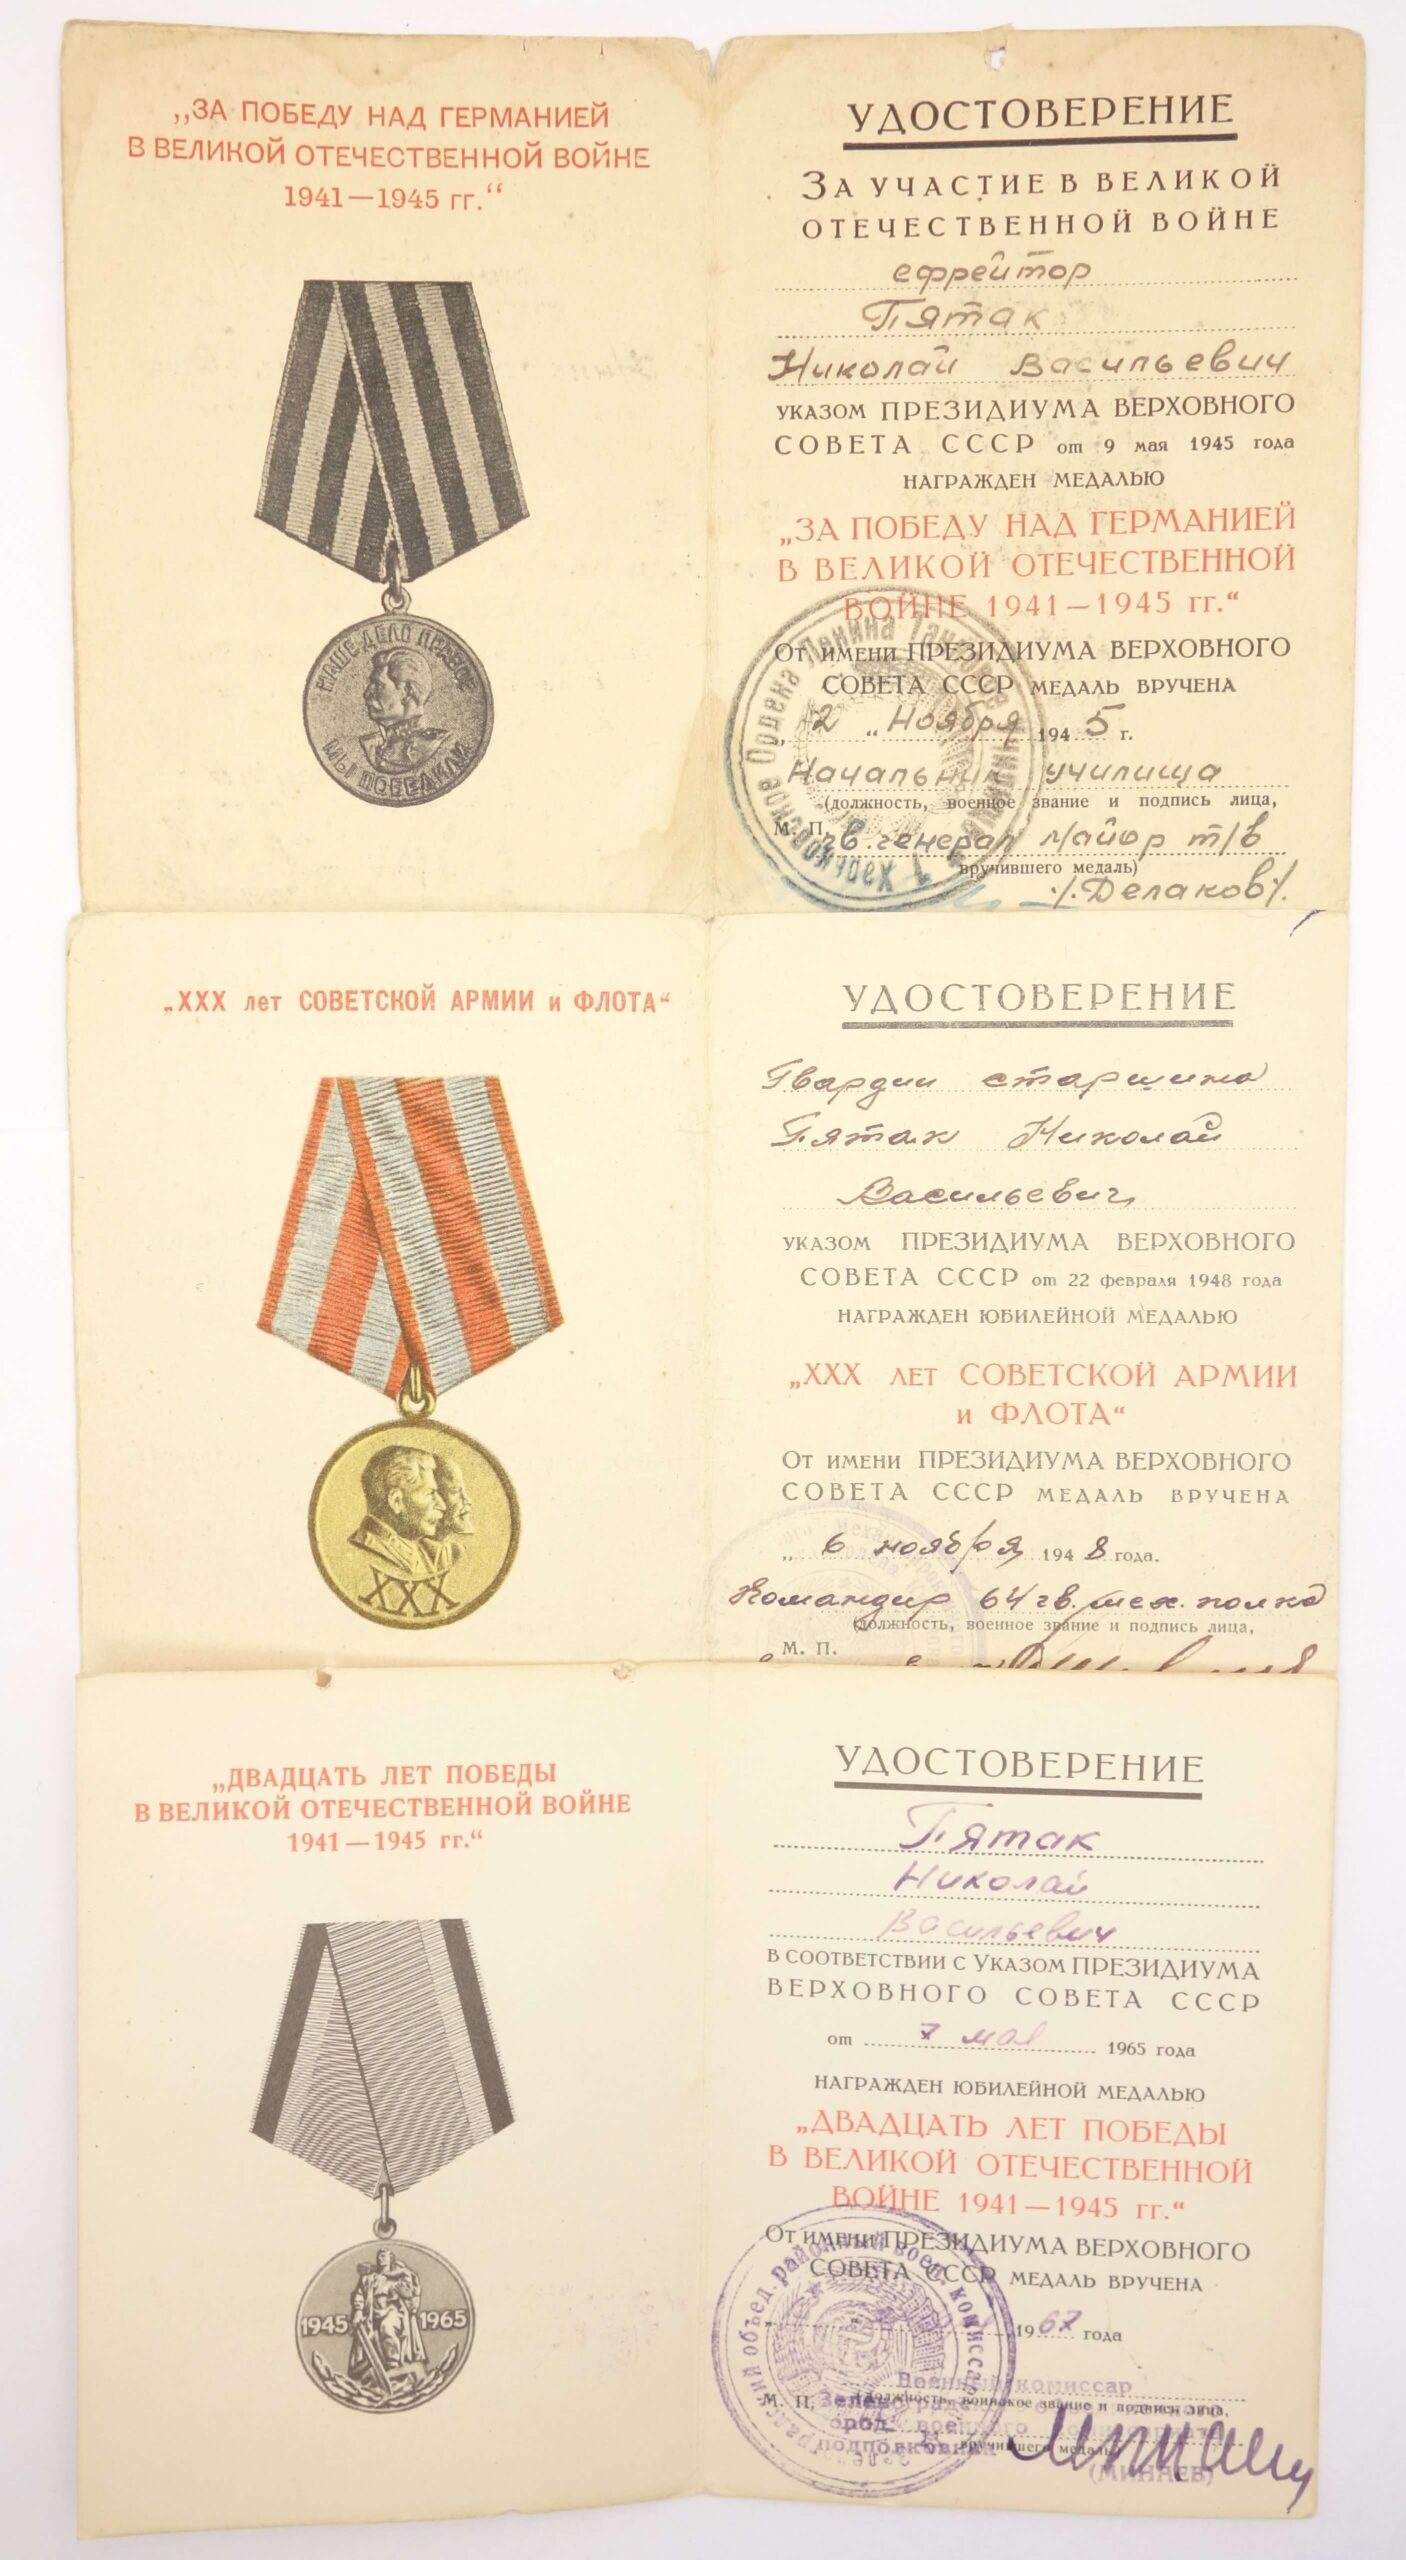 „ЗА ПОБЕДУ НАД ГЕРМАНИЕЙ
В ВЕЛИКОЙ ОТЕЧЕСТВЕННОЙ ВОЙНЕ
1941—1945 гг.“
НАШЕ ДЕЛО ПРАВОЕ
МЫ ПОБЕДИЛИ
УДОСТОВЕРЕНИЕ
ЗА УЧАСТИЕ В ВЕЛИКОЙ
ОТЕЧЕСТВЕННОЙ ВОЙНЕ
ефрейтор
Пятак
Николай Васильевич
УКАЗОМ ПРЕЗИДИУМА ВЕРХОВНОГО
СОВЕТА СССР от 9 мая 1945 года
НАГРАЖДЕН МЕДАЛЬЮ
„ЗА ПОБЕДУ НАД ГЕРМАНИЕЙ
В ВЕЛИКОЙ ОТЕЧЕСТВЕННОЙ
ВОЙНЕ 1941—1945 гг.“
От имени ПРЕЗИДИУМА ВЕРХОВНОГО
СОВЕТА СССР МЕДАЛЬ ВРУЧЕНА
„ 2 “ Ноября 1945 г.
Начальник училища
(должность, военное звание и подпись лица,
М. П. гв. генерал майор т/в
вручившего медаль)
/.Делаков/.
Харьковское Ордена Ленина
„XXX лет СОВЕТСКОЙ АРМИИ и ФЛОТА“
XXX
УДОСТОВЕРЕНИЕ
Гвардии старшина
Пятак Николай
Васильевич
УКАЗОМ ПРЕЗИДИУМА ВЕРХОВНОГО
СОВЕТА СССР от 22 февраля 1948 года
НАГРАЖДЕН ЮБИЛЕЙНОЙ МЕДАЛЬЮ
„XXX ЛЕТ СОВЕТСКОЙ АРМИИ
и ФЛОТА“
От имени ПРЕЗИДИУМА ВЕРХОВНОГО
СОВЕТА СССР МЕДАЛЬ ВРУЧЕНА
„ 6 ноября 1948 года.
Командир 64 гв. мех. полка
(должность, военное звание и подпись лица,
М. П.
„ДВАДЦАТЬ ЛЕТ ПОБЕДЫ
В ВЕЛИКОЙ ОТЕЧЕСТВЕННОЙ ВОЙНЕ
1941—1945 гг.“
1945 1965
УДОСТОВЕРЕНИЕ
Пятак
Николай
Васильевич
В СООТВЕТСТВИИ С УКАЗОМ ПРЕЗИДИУМА
ВЕРХОВНОГО СОВЕТА СССР
от 7 мая 1965 года
НАГРАЖДЕН ЮБИЛЕЙНОЙ МЕДАЛЬЮ
„ДВАДЦАТЬ ЛЕТ ПОБЕДЫ
В ВЕЛИКОЙ ОТЕЧЕСТВЕННОЙ
ВОЙНЕ 1941—1945 гг.“
От имени ПРЕЗИДИУМА ВЕРХОВНОГО
СОВЕТА СССР МЕДАЛЬ ВРУЧЕНА
1967 года
Военный комиссар
М. П. (должность, воинское звание и подпись лица,
подполковник вручившего медаль)
(МИНАЕВ)
объед. районный воен. комиссар